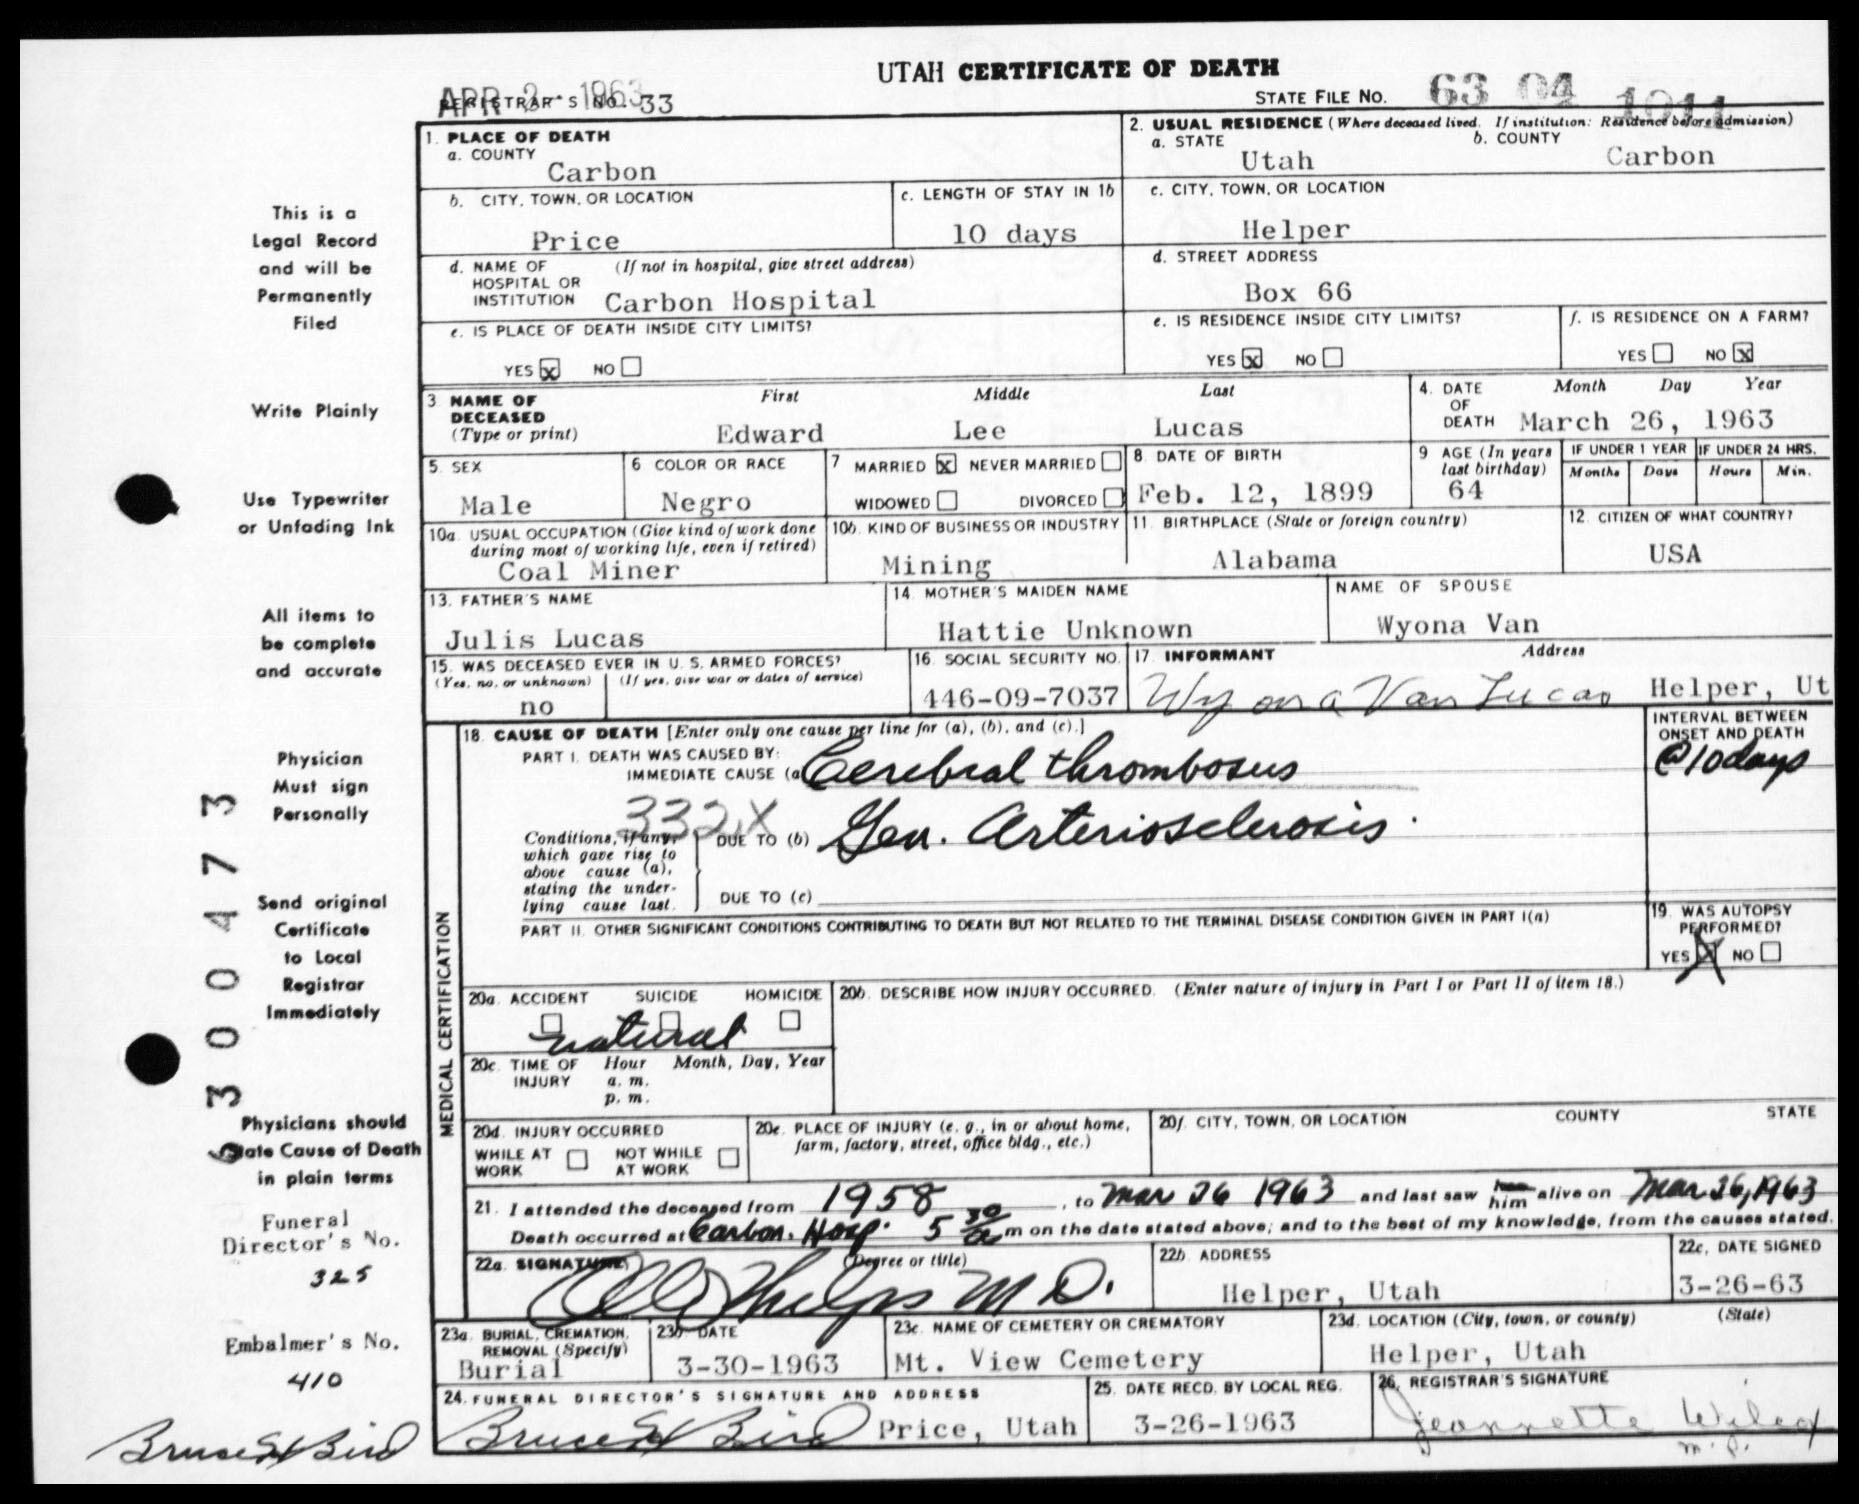 UTAH CERTIFICATE OF DEATH
APR 2 - 1963
REGISTRAR'S NO. 33
STATE FILE NO. 63 04 1011
1. PLACE OF DEATH
a. COUNTY
Carbon
2. USUAL RESIDENCE (Where deceased lived. If institution: Residence before admission)
a. STATE
Utah
b. COUNTY
Carbon
b. CITY, TOWN, OR LOCATION
Price
c. LENGTH OF STAY IN 1b
10 days
c. CITY, TOWN, OR LOCATION
Helper
d. NAME OF HOSPITAL OR INSTITUTION
(If not in hospital, give street address)
Carbon Hospital
d. STREET ADDRESS
Box 66
e. IS PLACE OF DEATH INSIDE CITY LIMITS?
YES X NO
e. IS RESIDENCE INSIDE CITY LIMITS?
YES X NO
f. IS RESIDENCE ON A FARM?
YES NO X
3 NAME OF DECEASED
(Type or print)
First Middle Last
Edward Lee Lucas
4. DATE OF DEATH
Month Day Year
March 26, 1963
5. SEX
Male
6 COLOR OR RACE
Negro
7 MARRIED X NEVER MARRIED
WIDOWED DIVORCED
8. DATE OF BIRTH
Feb. 12, 1899
9 AGE (In years last birthday)
64
IF UNDER 1 YEAR
Months Days
IF UNDER 24 HRS.
Hours Min.
10a. USUAL OCCUPATION (Give kind of work done during most of working life, even if retired)
Coal Miner
10b. KIND OF BUSINESS OR INDUSTRY
Mining
11. BIRTHPLACE (State or foreign country)
Alabama
12. CITIZEN OF WHAT COUNTRY?
USA
13. FATHER'S NAME
Julis Lucas
14. MOTHER'S MAIDEN NAME
Hattie Unknown
NAME OF SPOUSE
Wyona Van
15. WAS DECEASED EVER IN U. S. ARMED FORCES?
(Yes, no, or unknown) (If yes, give war or dates of service)
no
16. SOCIAL SECURITY NO.
446-09-7037
17. INFORMANT Address
Wyona Van Lucas Helper, Ut
18. CAUSE OF DEATH [Enter only one cause per line for (a), (b), and (c).]
INTERVAL BETWEEN ONSET AND DEATH
PART I. DEATH WAS CAUSED BY:
IMMEDIATE CAUSE (a) Cerebral thrombosus
@10 days
332X
Conditions, if any, which gave rise to above cause (a), stating the underlying cause last.
DUE TO (b) Gen. Arteriosclerosis.
DUE TO (c)
PART II. OTHER SIGNIFICANT CONDITIONS CONTRIBUTING TO DEATH BUT NOT RELATED TO THE TERMINAL DISEASE CONDITION GIVEN IN PART I(a)
19. WAS AUTOPSY PERFORMED?
YES X NO
MEDICAL CERTIFICATION
20a. ACCIDENT SUICIDE HOMICIDE
natural
20b. DESCRIBE HOW INJURY OCCURRED. (Enter nature of injury in Part I or Part II of item 18.)
20c. TIME OF INJURY Hour Month, Day, Year
a. m.
p. m.
20d. INJURY OCCURRED
WHILE AT WORK NOT WHILE AT WORK
20e. PLACE OF INJURY (e. g., in or about home, farm, factory, street, office bldg., etc.)
20f. CITY, TOWN, OR LOCATION COUNTY STATE
21. I attended the deceased from 1958, to Mar 26 1963 and last saw her him alive on Mar. 26, 1963
Death occurred at Carbon. Hosp. 5 30/a m on the date stated above; and to the best of my knowledge, from the causes stated.
22a. SIGNATURE (Degree or title)
Phelps M D.
22b. ADDRESS
Helper, Utah
22c. DATE SIGNED
3-26-63
23a. BURIAL, CREMATION, REMOVAL (Specify)
Burial
23b DATE
3-30-1963
23c. NAME OF CEMETERY OR CREMATORY
Mt. View Cemetery
23d. LOCATION (City, town, or county) (State)
Helper, Utah
24. FUNERAL DIRECTOR'S SIGNATURE AND ADDRESS
Bruce Bird Price, Utah
25. DATE RECD. BY LOCAL REG.
3-26-1963
26. REGISTRAR'S SIGNATURE
Jeannette Wilcox
This is a
Legal Record
and will be
Permanently
Filed
Write Plainly
Use Typewriter
or Unfading Ink
All items to
be complete
and accurate
Physician
Must sign
Personally
Send original
Certificate
to Local
Registrar
Immediately
Physicians should
State Cause of Death
in plain terms
6300473
Funeral
Director's No.
325
Embalmer's No.
410
Bruce Bird